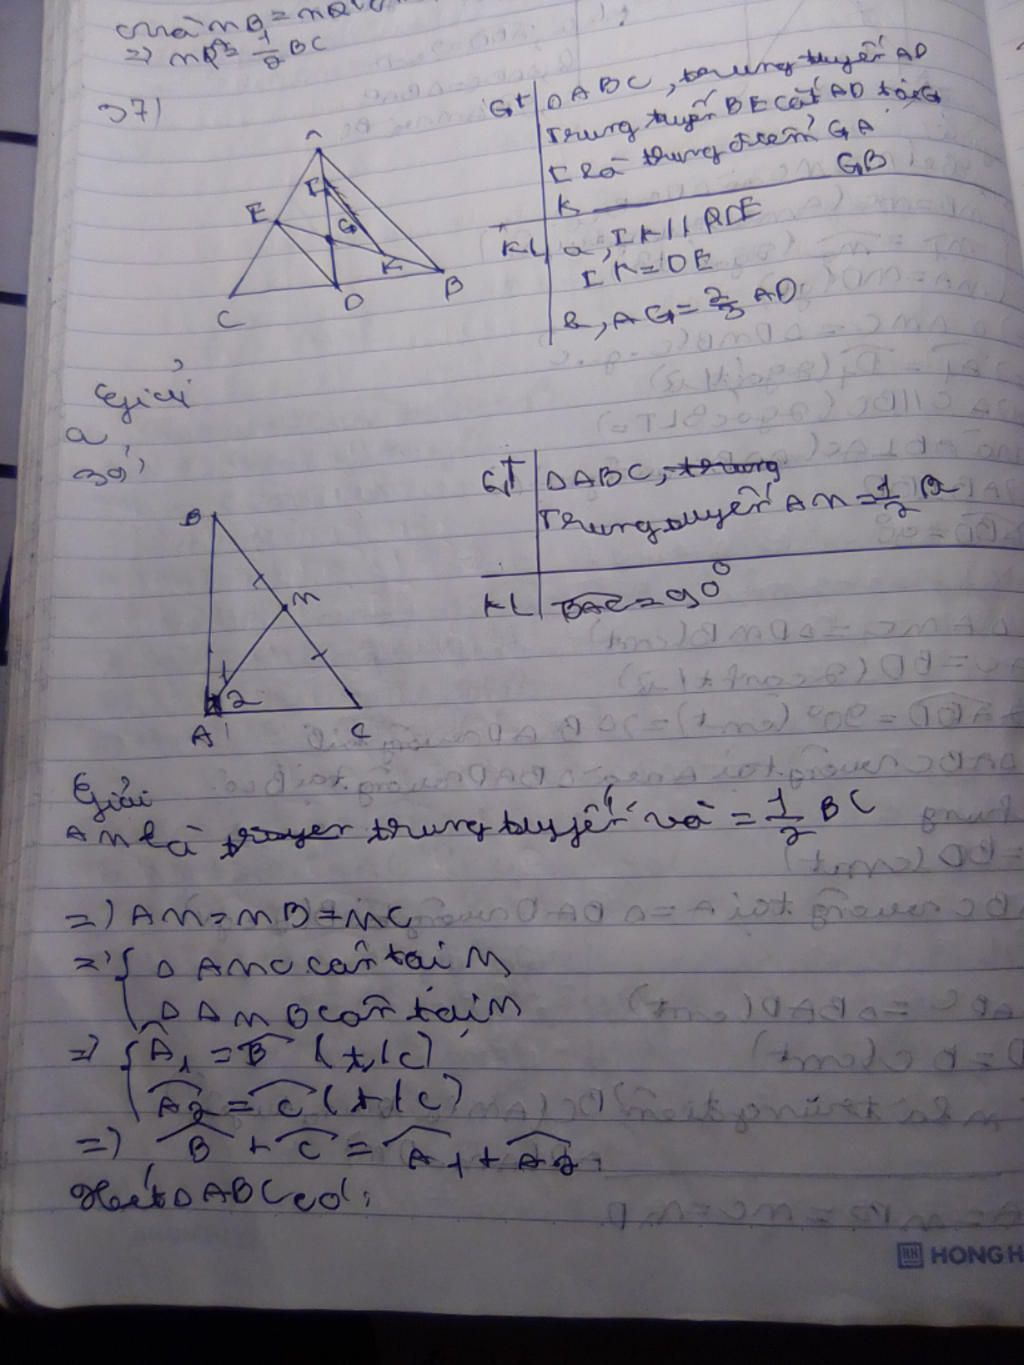 => MA = 1/2 BC
37)
GT
ΔABC, trung tuyến AD
Trung tuyến BE cắt AD tại G
I là trung điểm GA
K GB
KL
a, IK // DE
IK = DE
b, AG = 2/3 AD
A
I
E
G
K
C
D
B
Giải
a,
39)
GT
ΔABC, trung
Trung tuyến AM = 1/2 BC
KL
BAC = 90°
B
M
1
2
A
C
Giải
AM là trung tuyến và = 1/2 BC
=> AM = MB = MC
=> { ΔAMC cân tại M
ΔAMB cân tại M
=> { A1 = B (t/c)
A2 = C (t/c)
=> B + C = A1 + A2
Xét ΔABC có:
HONG H